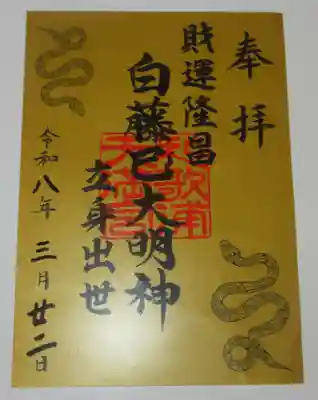 奉拝
財運隆昌
白藤巳大明神
立身出世
令和八年三月廿二日